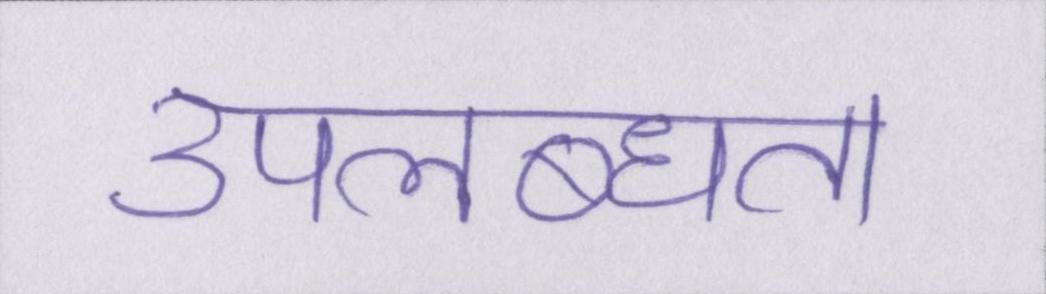 उपलब्धता